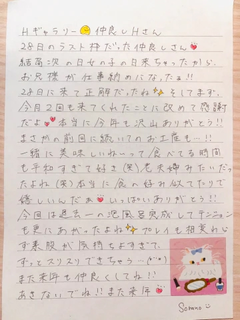 Hギャラリー 仲良しHさん
28日のラスト枠だった仲良しさん
結局次の日女の子の日来ちゃったから、
お兄様が仕事納めになったよ!!
28日に来て正解だったね そしてまず、
今月2回も来てくれたことに改めて感謝
だよ 本当に今年も沢山ありがとう!!
まさかの前回に続い?のお土産も…!!
一緒に美味しいねーって食べてる時間
も平和すぎて好き(笑)老夫婦みたいだっ
たよね(笑)本当に食の好み似てたりで
嬉しいんだぁ いっぱいありがとう!!
今回は過去一の泡風呂完成してテンション
も更にあがったよね プレイも相変わら
ず素股が気持ちよすぎて、
ずっとスリスリできちゃう
また来年も仲良くしてね!!
あさないでね!!また来年